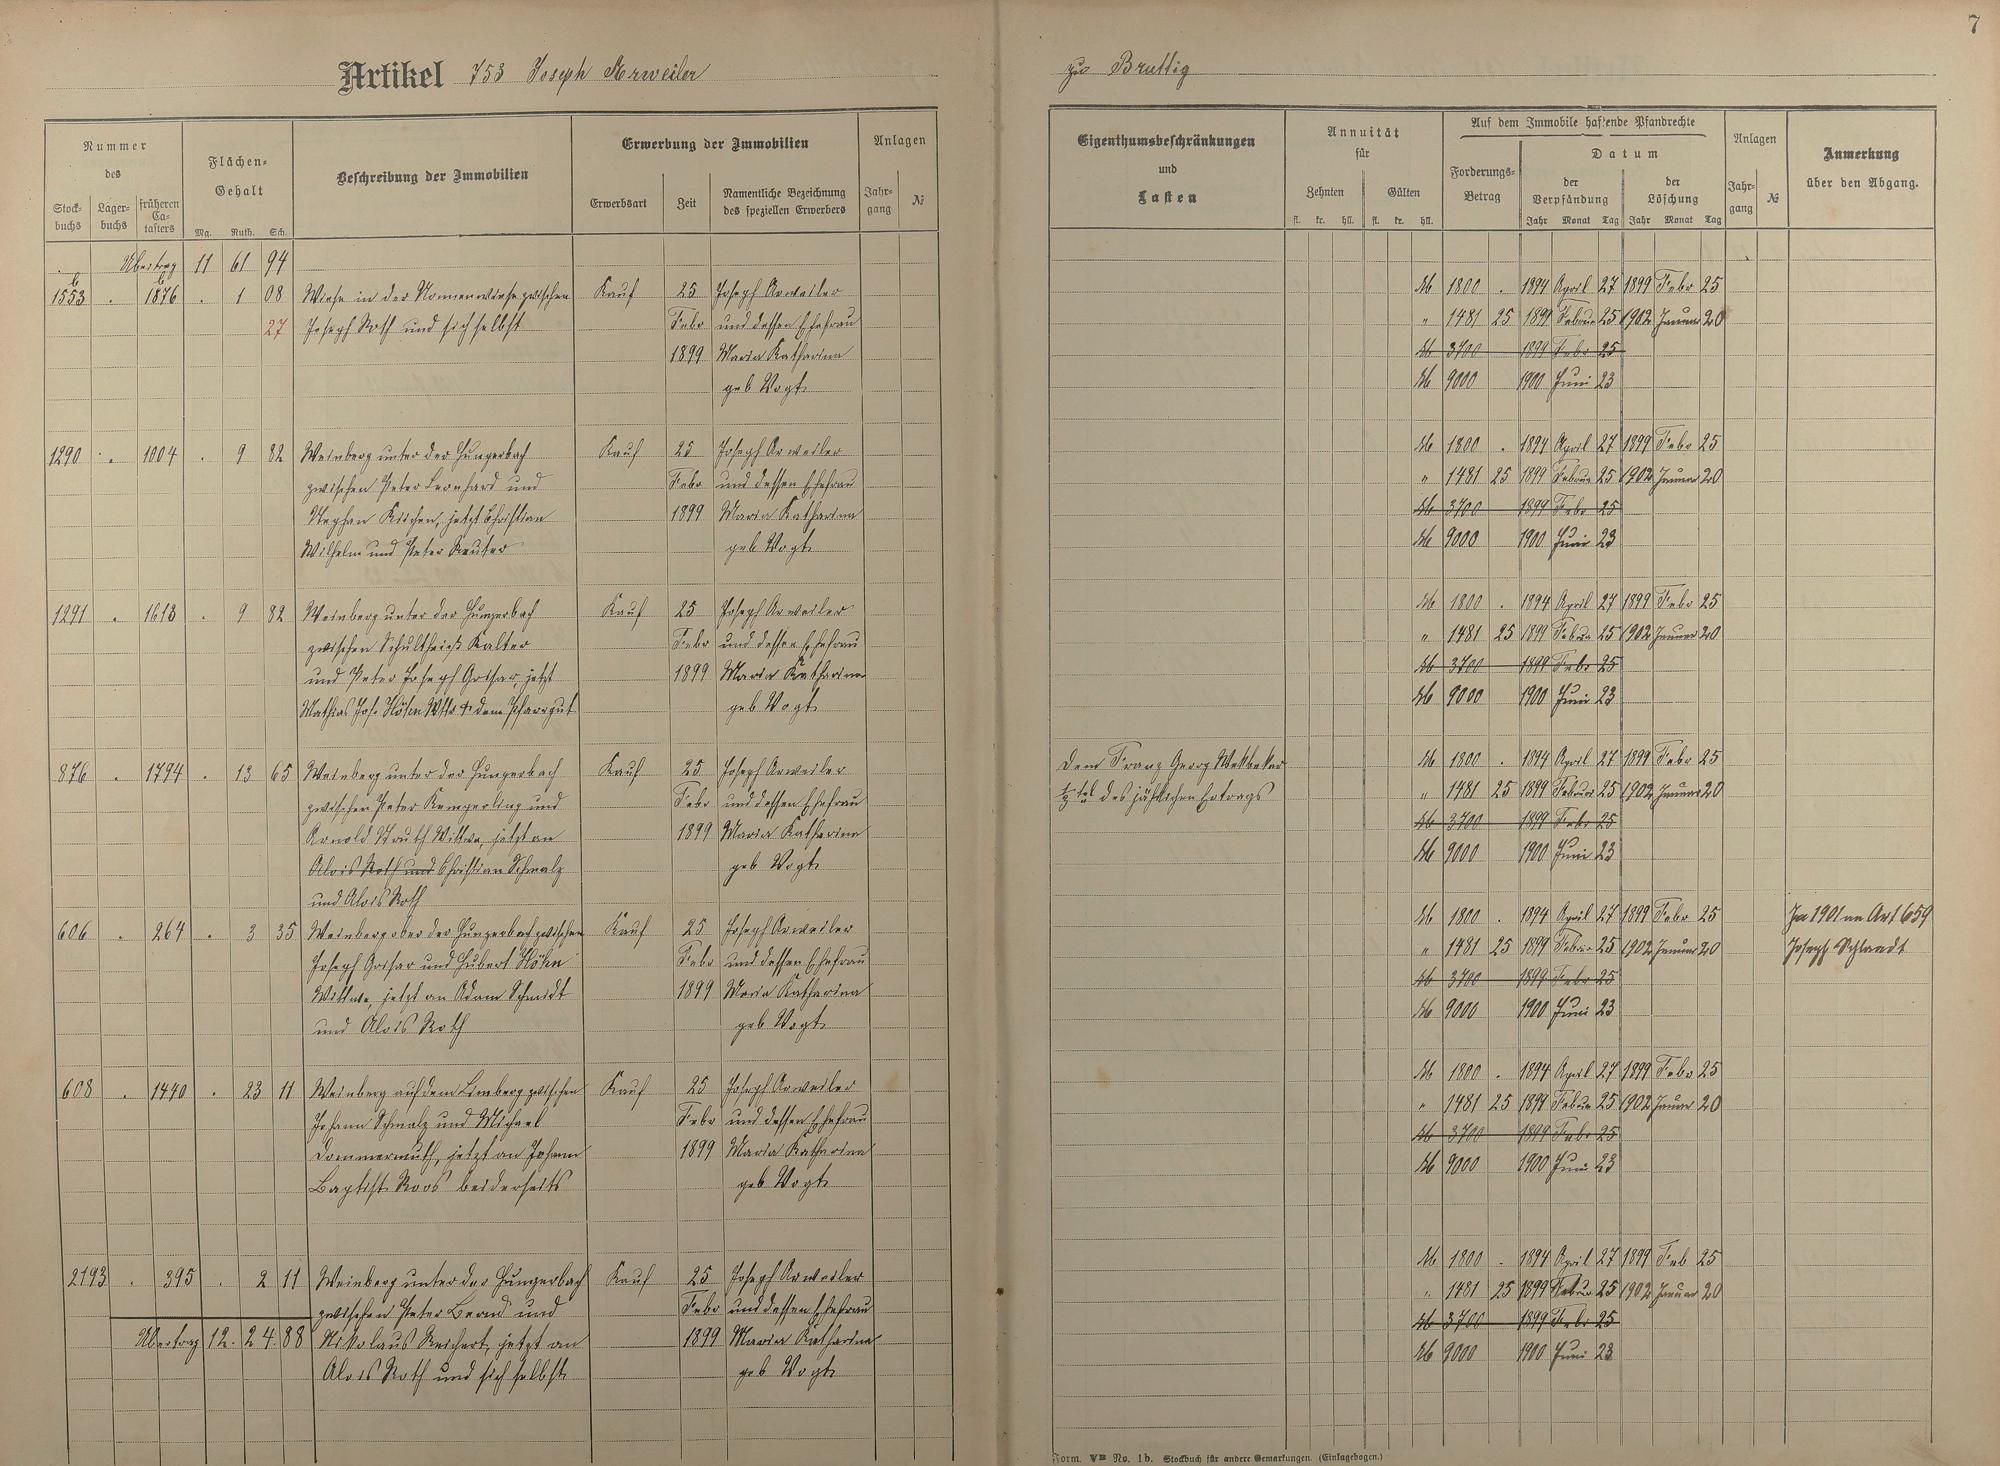 7
Artikel 753 Joseph Arweiler
zu Bruttig
Nummer
des
Stock-
buchs
Lager-
buchs
früheren
Ca-
tasters
Flächen-
Gehalt
Mg. Ruth. Sch.
Beschreibung der Immobilien
Erwerbung der Immobilien
Erwerbsart
Zeit
Namentliche Bezeichnung
des speziellen Erwerbers
Anlagen
Jahr-
gang
№
Übertrag 11 61 94
b b
1553 . 1876 . 1 08 Wiese in der Nonnenwiese zwischen Kauf 25 Joseph Arweiler
27 Joseph Roth und sich selbst Febr und dessen Ehefrau
1899 Maria Katharina
geb Vogt
1290 . 1004 . 9 82 Weinberg unter der Hungerbach Kauf 25 Joseph Arweiler
zwischen Peter Leonhard und Febr und dessen Ehefrau
Stephan Kirchen, jetzt Christian 1899 Maria Katharina
Wilhelm und Peter Reuter geb Vogt
1291 . 1613 . 9 82 Weinberg unter der Hungerbach Kauf 25 Joseph Arweiler
zwischen Schultheiß Kalter Febr und dessen Ehefrau
und Peter Joseph Goesar, jetzt 1899 Maria Katharina
Mathias Jos. Höhn Wtw & dem Pfarrgut geb Vogt
876 . 1794 . 13 65 Weinberg unter der Hungerbach Kauf 25 Joseph Arweiler
zwischen Peter Kemperling und Febr und dessen Ehefrau
Arnold Wittwe, jetzt an 1899 Maria Katharina
Alois Roth und Christian Schmalz geb Vogt
und Alois Roth
606 . 264 . 3 35 Weinberg ober der Hungerbach zwischen Kauf 25 Joseph Arweiler
Joseph Goesar und Hubert Höhn Febr und dessen Ehefrau
Wittwe, jetzt an Adam Schmidt 1899 Maria Katharina
und Alois Roth geb Vogt
608 . 1440 . 23 11 Weinberg auf dem Limberg zwischen Kauf 25 Joseph Arweiler
Johann Schmalz und Michael Febr und dessen Ehefrau
Dommermuth, jetzt an Johann 1899 Maria Katharina
Baptist Roos beiderseits geb Vogt
2193 . 395 . 2 11 Weinberg unter der Hungerbach Kauf 25 Joseph Arweiler
zwischen Peter Bernd und Febr und dessen Ehefrau
Übertrag 12. 24. 88 Nikolaus Reichert, jetzt an 1899 Maria Katharina
Alois Roth und sich selbst geb Vogt
Eigenthumsbeschränkungen
und
Lasten
Annuität
für
Zehnten
Gülten
fl. kr. hll. fl. kr. hll.
Auf dem Immobile haftende Pfandrechte
Forderungs-
Betrag
Datum
der
Verpfändung
Jahr Monat Tag
der
Löschung
Jahr Monat Tag
Anlagen
Jahr-
gang
№
Anmerkung
über den Abgang.
M 1800 . 1894 April 27 1899 Febr 25
" 1481 25 1899 Februar 25 1902 Januar 20
M 3700 1899 Febr 25
M 9000 1900 Juni 23
M 1800 . 1894 April 27 1899 Febr 25
" 1481 25 1899 Februar 25 1902 Januar 20
M 3700 1899 Febr 25
M 9000 1900 Juni 23
M 1800 . 1894 April 27 1899 Febr 25
" 1481 25 1899 Februar 25 1902 Januar 20
M 3700 1899 Febr 25
M 9000 1900 Juni 23
Dem Franz Georg M 1800 . 1894 April 27 1899 Febr 25
des jährlichen Ertrags " 1481 25 1899 Februar 25 1902 Januar 20
M 3700 1899 Febr 25
M 9000 1900 Juni 23
M 1800 . 1894 April 27 1899 Febr 25 In 1901 an Art 659
" 1481 25 1899 Februar 25 1902 Januar 20 Joseph Schlandt
M 3700 1899 Febr 25
M 9000 1900 Juni 23
M 1800 . 1894 April 27 1899 Febr 25
" 1481 25 1899 Februar 25 1902 Januar 20
M 3700 1899 Febr 25
M 9000 1900 Juni 23
M 1800 . 1894 April 27 1899 Feb 25
" 1481 25 1899 Februar 25 1902 Januar 20
M 3700 1899 Febr 25
M 9000 1900 Juni 23
Form. VIII No. 1b. Stockbuch für andere Gemarkungen. (Einlagebogen.)